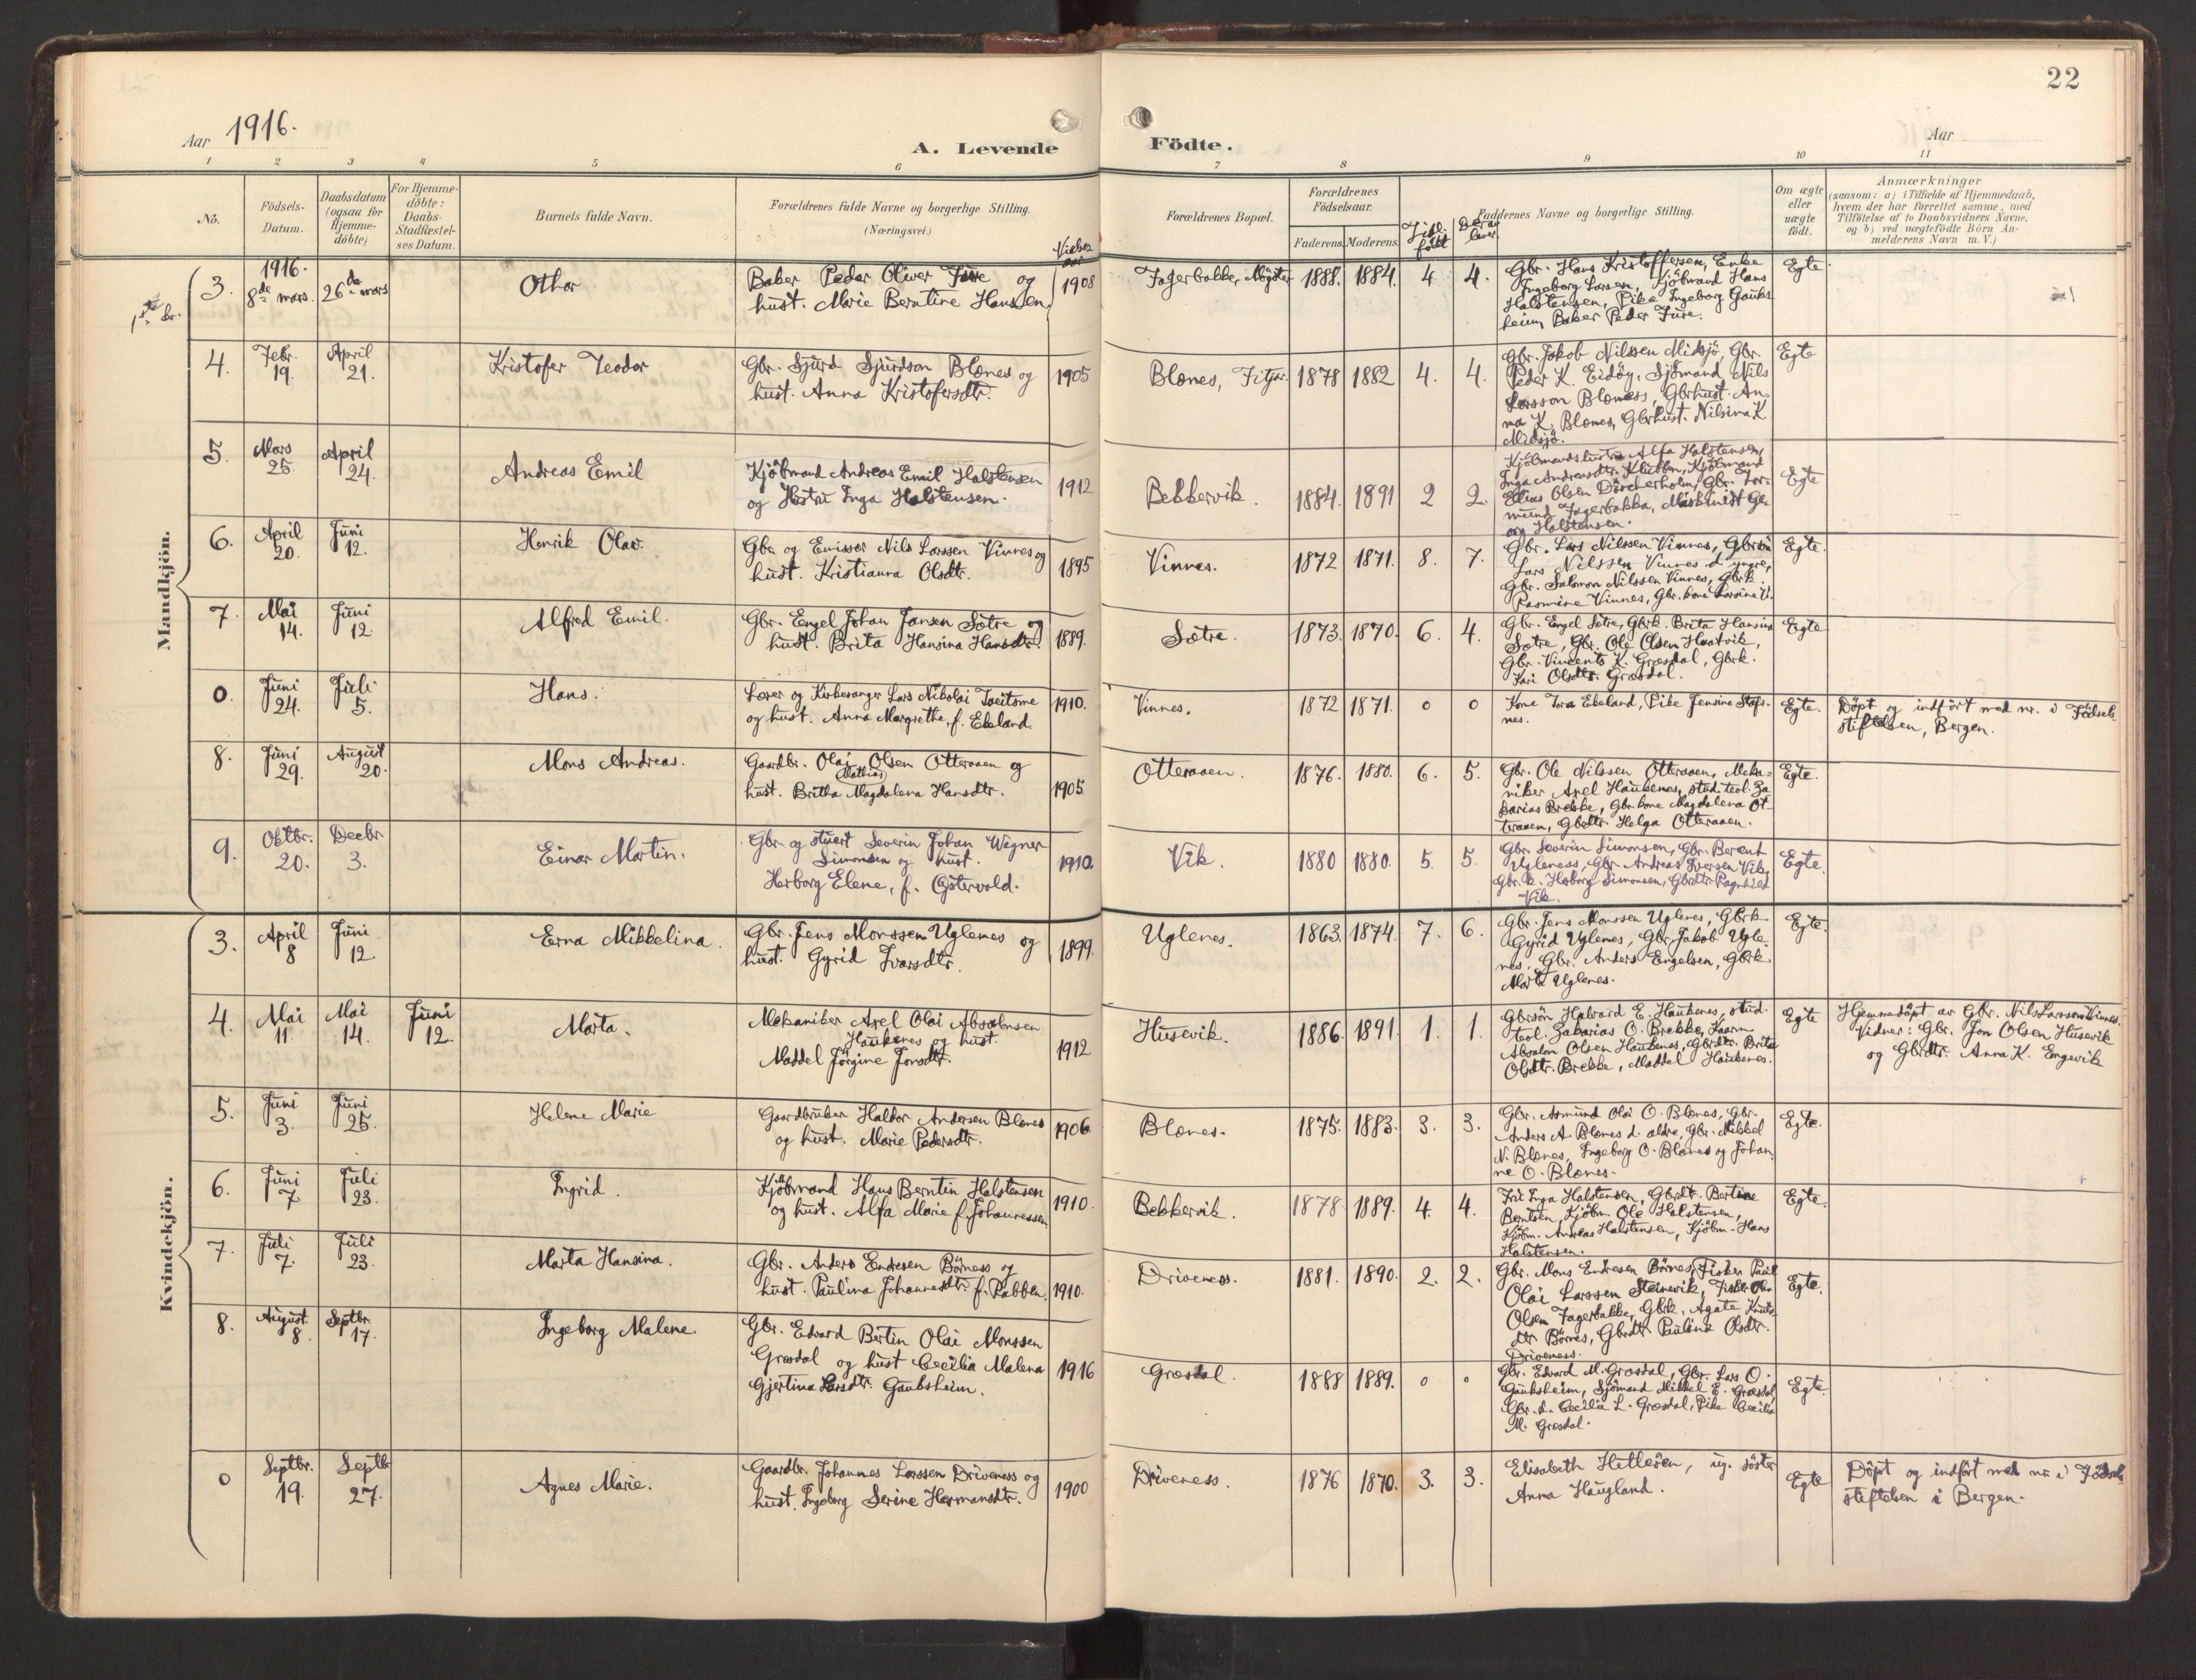 22
Aar 1916.
A. Levende Födte.
Aar
1 2 3 4 5 6 7 8 9 10 11
No.
Födsels-
Datum.
Daabsdatum
(ogsaa for
Hjemme-
döbte)
For Hjemme-
döbte:
Daabs-
Stadfæstel-
ses Datum.
Barnets fulde Navn.
Forældrenes fulde Navne og borgerlige Stilling.
(Næringsvei.)
Vielses
aar
Forældrenes Bopæl.
Forældrenes
Födselsaar.
Faderens. Moderens.
Tidl.
födt
Derav
lever
Faddernes Navne og borgerlige Stilling.
Om ægte
eller
uægte
födt.
Anmærkninger
(saasom: a) i Tilfælde af Hjemmedaab,
hvem der har forrettet samme, med
Tilföielse af to Daabsvidners Navne,
og b) ved uægtefödte Börn An-
melderens Navn m. V.)
Mandkjön.
3.
1916.
8de mars.
26de mars
Othar
Baker Peder Oliver Fure og
hust. Marie Berntine Hanssen.
1908
Fagerbakke, Møgster
1888. 1884. 4 4.
Gbr. Hans Kristoffersen, Enke
Ingeborg Larsen, Kjöbmand Hans
Halstensen, Pike Ingeborg Gauks-
heim, Baker Peder Fure.
Egte
4.
Febr.
19.
April
21.
Kristofer Teodor
Gbr. Sjurd Sjurdson Blænes og
hust. Anna Kristofersdtr.
1905
Blænes, Fitjar.
1878 1882 4. 4.
Gbr. Jakob Nilssen Midsjö, Gbr.
Peder K. Eidöy, Sjömand Nils
Larsson Blænes, Gbrhust. An-
na K. Blænes, Gbrhust. Nilsina K
Midsjö.
Egte
5.
Mars
25.
April
24.
Andreas Emil
Kjöbmand Andreas Emil Halstensen
og Hustru Inga Halstensen.
1912
Bekkervik.
1884. 1891 2 2.
Kjöbmandshustru Alfa Halstensen,
Inga Andreasdtr. Klubben, Kjöbmand
Elias Olsen Dörcherholm, Gbr. Gor-
mund Fagerbakke, Maskinist Ge-
org Halstensen.
Egte
6.
April
20.
Juni
12.
Henrik Olav.
Gbr. og Emissær Nils Larssen Vinnes og
hust. Kristianna Olsdtr.
1895
Vinnes.
1872 1871. 8. 7.
Gbr. Lars Nilssen Vinnes, Gbrsön
Lars Nilssen Vinnes d. yngre,
Gbr. Salamon Nilssen Vinnes, Gbrk.
Rasmine Vinnes, Gbr. kone Larsine V.
Egte.
7.
Mai
14.
Juni
12.
Alfred Emil.
Gbr. Engel Johan Jansen Sætre og
hust. Brita Hansina Hansdtr.
1889.
Sætre.
1873. 1870. 6. 4.
Gbr. Engel Sætre, Gbrk. Brita Hansina
Sætre, Gbr. Ole Olsen Hvatvik,
Gbr. Vincents K. Græsdal, Gbrk.
Kari Olsdtr. Græsdal.
Egte
0.
Juni
24.
Juli
5.
Hans.
Lærer og Kirkesanger Lars Nikolai Tveitsme
og hust. Anna Margrethe, f. Ekeland.
1910.
Vinnes.
1872 1871. 0 0
Kone Tora Ekeland, Pike Jensine Stafs-
nes.
Egte.
Döpt og indfört med nr. i Födsels-
stiftelsen, Bergen.
8.
Juni
29.
August
20.
Mons Andreas.
Gaardbr. Olai Olsen Otteraaen og
(Mathias)
hust. Britha Magdalena Hansdtr.
1905
Otteraaen.
1876. 1880. 6. 5.
Gbr. Ole Nilssen Otteraaen, Meka-
niker Axel Haukenes, stud. teol. Za-
karias Brekke, Gbr. kone Magdalena Ot-
teraaen, Gbdtr. Helga Otteraaen.
Egte.
9.
Oktbr.
20.
Decbr.
3.
Einar Martin.
Gbr. og stuert Severin Johan Wegner
Simonsen og hust.
Herborg Elene, f. Østervold.
1910.
Vik.
1880 1880. 5. 5.
Gbr. Severin Simonsen, Gbr. Berent
Ugleness, Gbr. Andreas Iversen Vik,
Gbr. k. Herborg Simonsen, Gbrdtr. Ragnhild
Vik.
Egte.
Kvindekjön.
3.
April
8
Juni
12.
Erna Mikkelina.
Gbr. Jens Monssen Uglenes og
hust. Gyrid Ivarsdtr.
1899.
Uglenes.
1863. 1874. 7. 6.
Gbr. Jens Monssen Uglenes, Gbrk.
Gyrid Uglenes, Gbr. Jakob Ugle-
nes, Gbr. Anders Engelsen, Gbrk.
Marta Uglenes.
Egte.
4.
Mai
11.
Mai
14.
Juni
12.
Marta.
Mekaniker Axel Olai Absalonsen
Haukenes og hust.
Maddel Jörgine Jonsdtr.
1912
Husevik.
1886. 1891. 1. 1.
Gbrsön Halvard E. Haukenes, stud.
teol. Zakarias O. Brekke, Kaarm.
Absalon Olsen Haukenes, Gbrdtr. Brita
Olsdtr. Brekke, Maddel Haukenes.
Egte
Hjemmedöpt av Gbr. Nils Larsson Vinnes.
Vidner: Gbr. Jon Olsen Husevik
og Gbrdtr. Anna K. Engevik
5.
Juni
3.
Juni
25.
Helene Marie
Gaardbruker Haldor Andersen Blænes
og hust. Marie Pedersdtr.
1906.
Blænes.
1875. 1883. 3. 3.
Gbr. Asmund Olai O. Blænes, Gbr.
Anders A. Blænes d. ældre, Gbr. Mikkel
N. Blænes, Ingeborg O. Blænes og Johan-
ne O. Blænes.
Egte.
6.
Juni
7
Juli
23.
Ingrid.
Kjöbmand Hans Berntin Halstensen
og hust. Alfa Marie f. Johannessen
1910.
Bekkervik.
1878. 1889. 4. 4.
Fru Inga Halstensen, Gbrdtr. Bertine
Berntsen, Kjöbm. Ole Halstensen,
Kjöbm. Andreas Halstensen, Kjöbm. Hans
Halstensen.
Egte.
7.
Juli
7.
Juli
23.
Marta Hansina.
Gbr. Anders Endresen Börness og
hust. Paulina Johannesdtr. f. Rabben.
1910.
Driveness.
1881. 1890. 2. 2.
Gbr. Mons Endresen Börnes, Fisker Paul
Olai Larssen Steinevik, Fisker Olav
Olsen Fagerbakke, Gbrk. Agate Knuts-
dtr. Börnes, Gbrdtr. Paulina Olsdtr.
Driveness.
Egte.
8.
August
8.
Septbr.
17.
Ingeborg Malene.
Gbr. Edvard Bertin Olai Monssen
Græsdal og hust Cecilia Malena
Gjertina Larsdtr. Gauksheim.
1916
Græsdal.
1888 1889. 0 0
Gbr. Edvard M. Græsdal, Gbr. Lars O.
Gauksheim, Sjömand Mikkel E. Græsdal,
Gbr. k. Cecilia L. Græsdal, Pike Cecilia
M. Græsdal.
Egte.
0
Septbr.
19.
Septbr
27.
Agnes Marie.
Gaardbr. Johannes Larssen Driveness og
hust. Ingeborg Serine Hermansdtr.
1900
Driveness.
1876 1870. 3. 3.
Elisabeth Hetleøen, ug. söster
Anna Haugland.
Egte
Döpt og indfört med nr. i Födsels-
stiftelsen i Bergen.